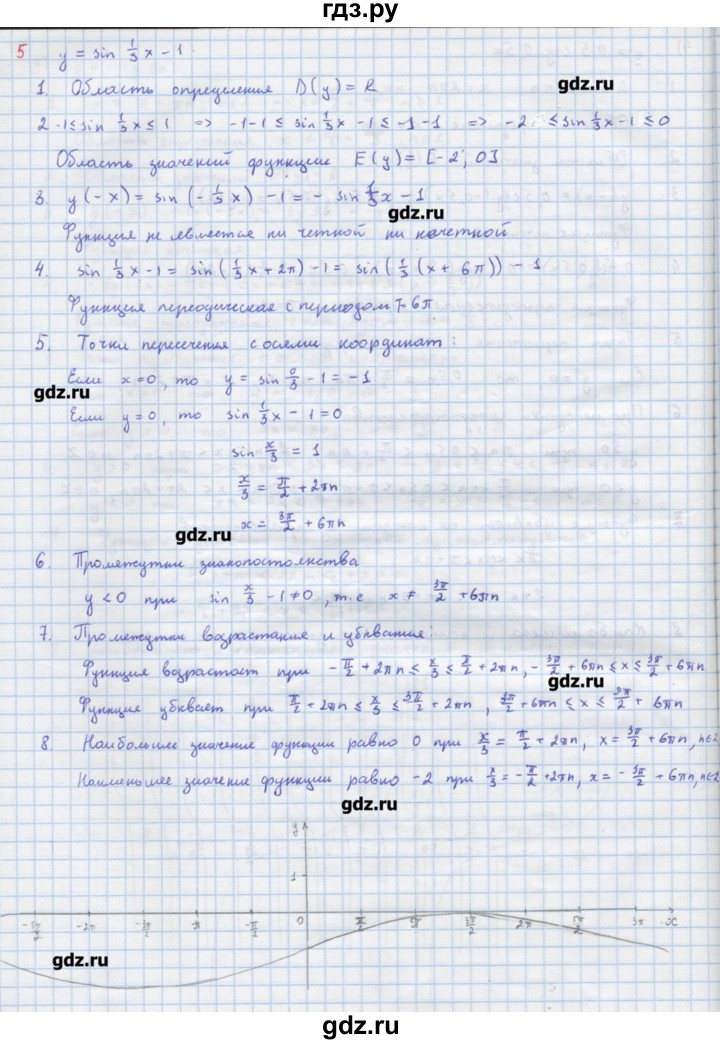 гдз.ру
5 y = sin 1/3 x - 1.
1. Область определения D(y) = R
gdz.ru
2 -1 ≤ sin 1/3 x ≤ 1 => -1-1 ≤ sin 1/3 x - 1 ≤ -1-1 => -2 ≤ sin 1/3 x - 1 ≤ 0
Область значений функции E(y) = [-2; 0]
3. y(-x) = sin(-1/3 x) - 1 = - sin 1/3 x - 1
gdz.ru
Функция не является ни четной ни нечетной
4. sin 1/3 x - 1 = sin(1/3 x + 2π) - 1 = sin(1/3 (x + 6π)) - 1
Функция переодическая с периодом T=6π
5. Точки пересечения с осями координат:
Если x=0, то y = sin 0/3 - 1 = -1
gdz.ru
Если y=0, то sin 1/3 x - 1 = 0
sin x/3 = 1
x/3 = π/2 + 2πn
x = 3π/2 + 6πn
gdz.ru
6. Прометутки знакопостоянства
y < 0 при sin x/3 - 1 ≠ 0, т.е x ≠ 3π/2 + 6πn
7. Прометутки возрастания и убывания:
Функция возрастает при -π/2 + 2πn ≤ x/3 ≤ π/2 + 2πn, -3π/2 + 6πn ≤ x ≤ 3π/2 + 6πn
gdz.ru
Функция убывает при π/2 + 2πn ≤ x/3 ≤ 3π/2 + 2πn, 3π/2 + 6πn ≤ x ≤ 9π/2 + 6πn
8. Наибольшее значение функции равно 0 при x/3 = π/2 + 2πn, x = 3π/2 + 6πn, n∈Z
Наименьшее значение функции равно -2 при x/3 = -π/2 + 2πn, x = -3π/2 + 6πn, n∈Z
gdz.ru
y
1
-5π/2 -2π -3π/2 -π -π/2 0 π/2 π 3π/2 2π 5π/2 3π x
gdz.ru
gdz.ru